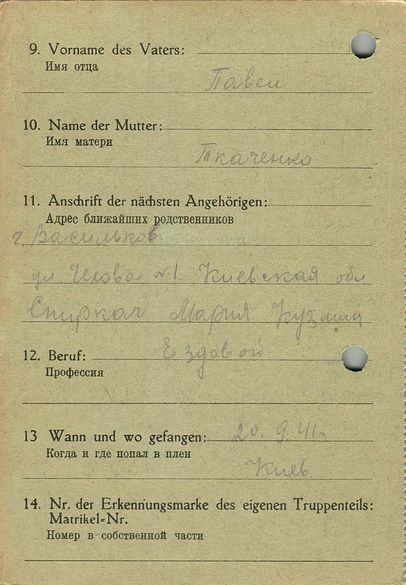 9. Vorname des Vaters:
Имя отца
Павел
10. Name der Mutter:
Имя матери
Ткаченко
11. Anschrift der nächsten Angehörigen:
Адрес ближайших родственников
г. Васильков
ул Чехова №1. Киевская обл
Спиркач Мария Кузмин
12. Beruf:
Ездовой
Профессия
13 Wann und wo gefangen:
20. 9 41г.
Когда и где попал в плен
Киев.
14. Nr. der Erkennungsmarke des eigenen Truppenteils:
Matrikel-Nr.
Номер в собственной части